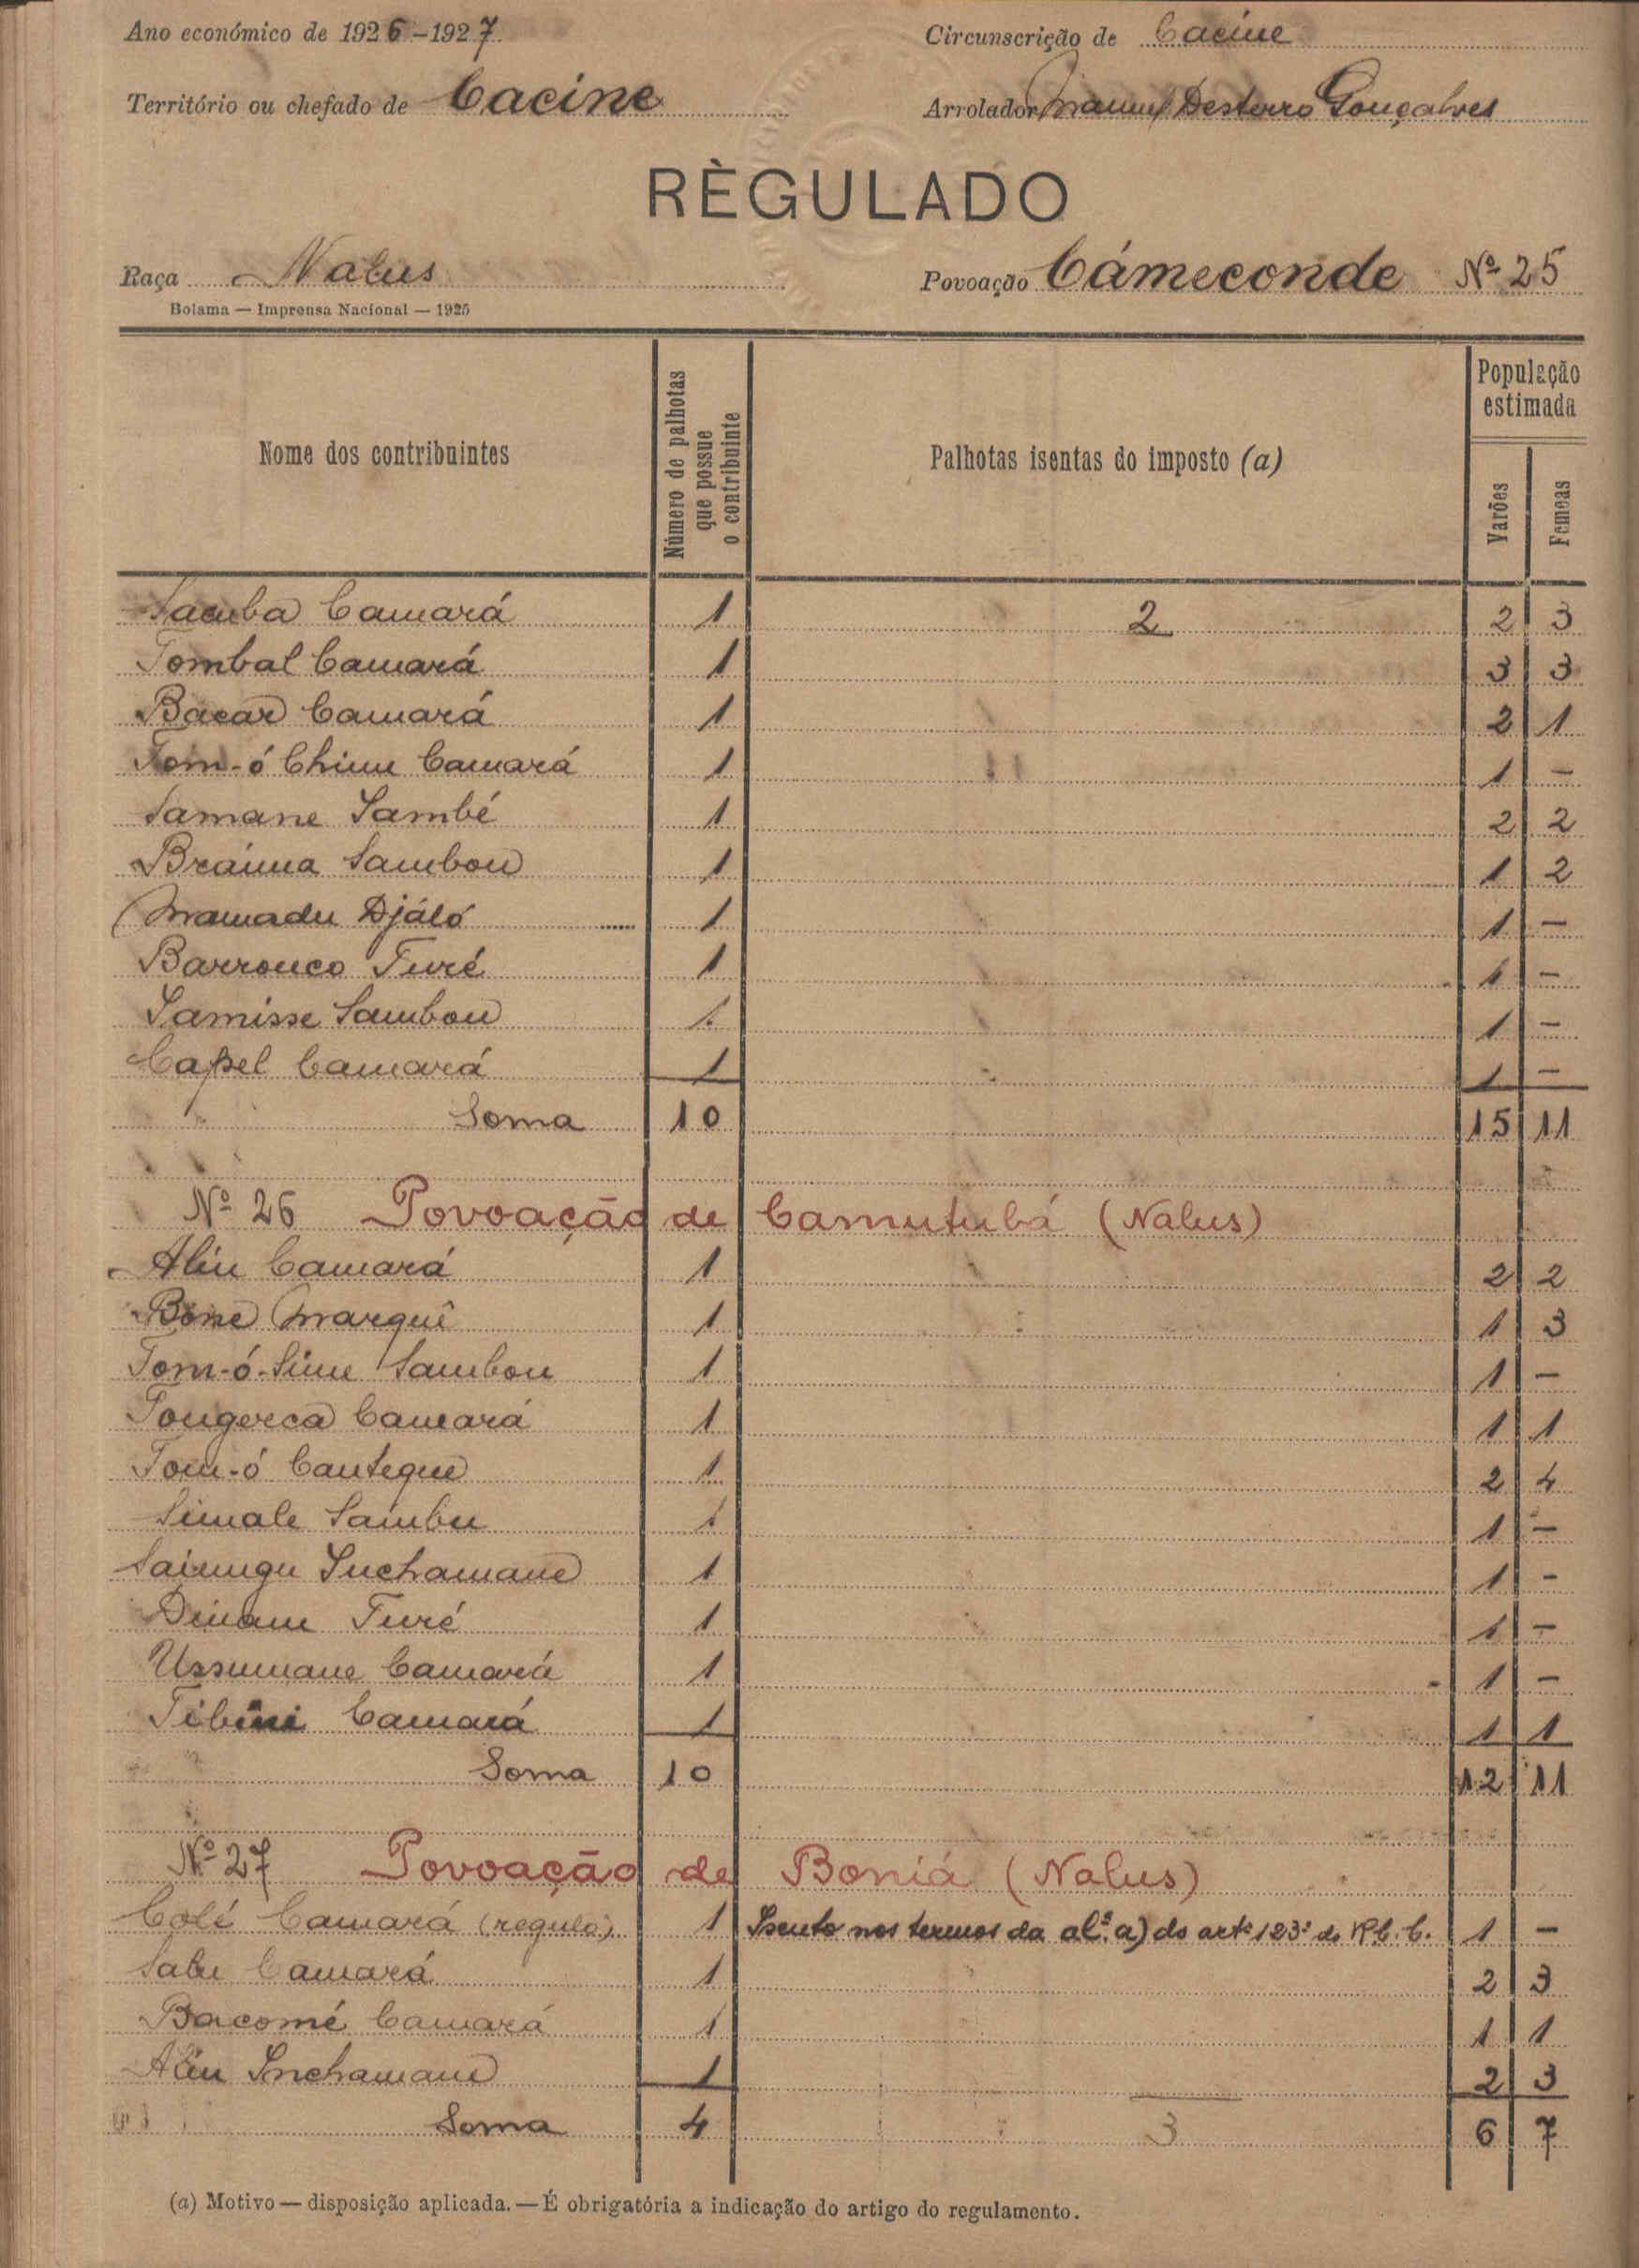 Ano económico de 1926-1927
Circunscrição de Cacine
Território ou chefado de Cacine
Arrolador Manuel Desterro Gonçalves
RÈGULADO
Raça Nalus
Povoação Cámeconde Nº 25
Bolama — Imprensa Nacional — 1925
Nome dos contribuintes
Número de palhotas que possue o contribuinte
Palhotas isentas do imposto (a)
População estimada
Varões
Femeas
Sacuba Camará 1 2 2 3
Tombal Camará 1 3 3
Bacar Camará 1 2 1
Tom-ó Chime Camará 1 1 -
Samane Sambé 1 2 2
Braima Sambou 1 1 2
Mamadu Djáló 1 1 -
Barrouco Turé 1 1 -
Samisse Sambou 1 1 -
Capel Camará 1 1 -
Soma 10 15 11
Nº 26 Povoação de Camutubá (Nalus)
Aliu Camará 1 2 2
Bône Marquê 1 1 3
Tom-ó-Sime Sambou 1 1 -
Tougerca Camará 1 1 1
Tom-ó Cauteque 1 2 4
Simale Sambu 1 1 -
Suchamane 1 1 -
Turé 1 1 -
Ussumane Camará 1 1 -
Tibini Camará 1 1 1
Soma 10 12 11
Nº 27 Povoação de Boniá (Nalus)
Colé Camará (regulo) 1 Isento nos termos da alª. a) do artº 123º do R.C.C. 1 -
Salu Camará 1 2 3
Bacomé Camará 1 1 1
Aliu Inchamane 1 2 3
Soma 4 3 6 7
(a) Motivo — disposição aplicada. — É obrigatória a indicação do artigo do regulamento.